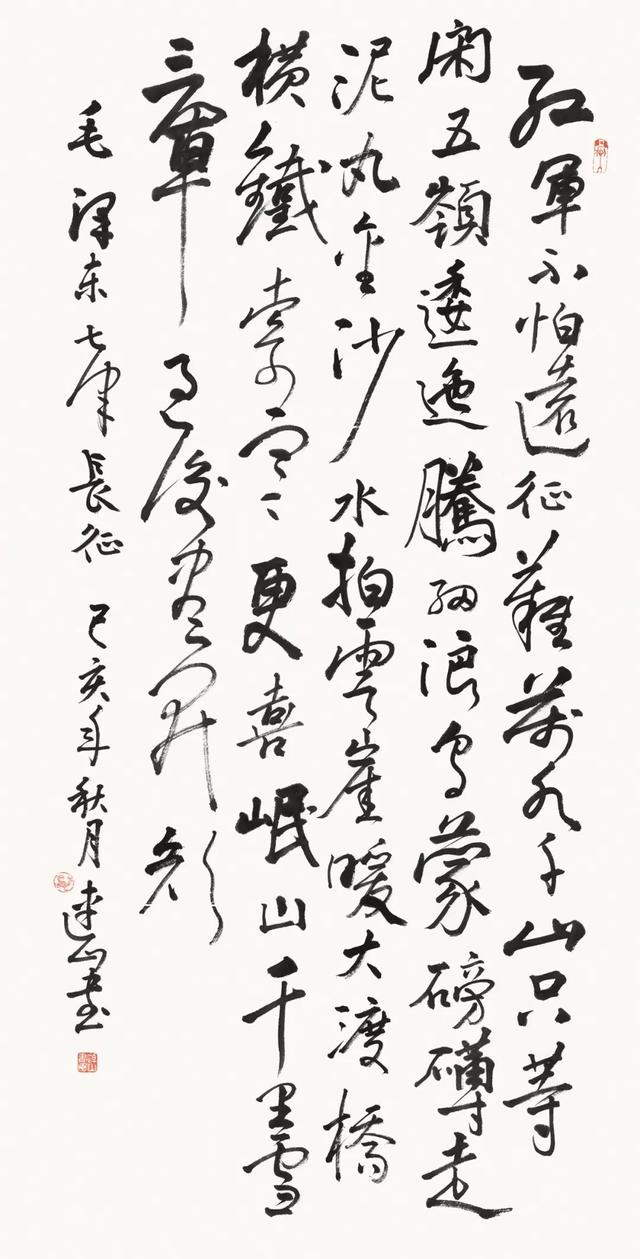 红軍不怕遠征難萬水千山只等
闲五嶺逶迤騰细浪烏蒙磅礴走
泥丸金沙水拍雲崖暖大渡橋
横鐵索寒更喜岷山千里雪
三軍过後盡開颜
毛泽东七律長征 己亥年秋月建书